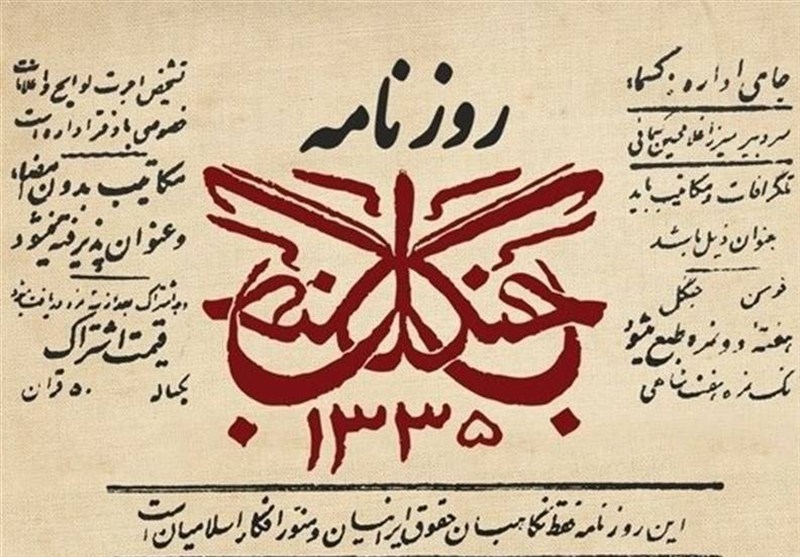 روزنامه
جنگل
۱۳۳۵
جای اداره : کسماء
سردبیر میرزا غلامحسین کسمائی
تلگرافات و مکاتیب باید
بعنوان ذیل باشد
فومن جنگل
هفتهٔ دو نمره طبع میشود
تک نمره هفت شاهی
تشخیص اجرت لوایح و اعلانات
خصوصی با دفتر اداره است
مکاتیب بدون امضاء
وعنوان پذیرفته نمیشود
وجه اشتراک بعد از نمره دریافت میشود
قیمت اشتراک
یکساله ۵۰ قران
این روزنامه فقط نگاهبان حقوق ایرانیان و منور افکار اسلامیان است